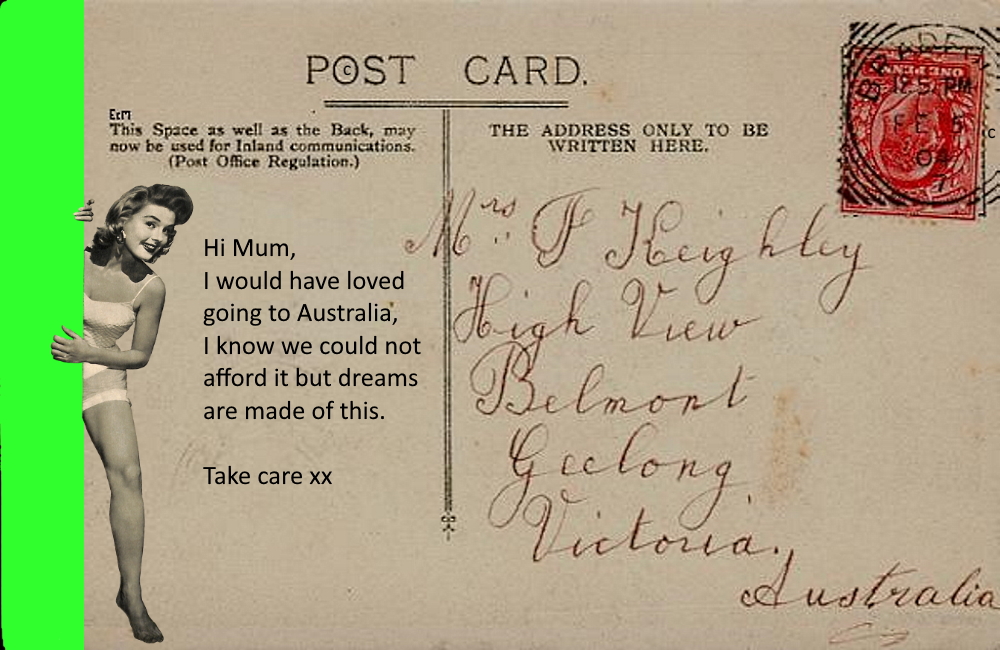 POST CARD.
EcM
This Space as well as the Back, may
now be used for Inland communications.
(Post Office Regulation.)
THE ADDRESS ONLY TO BE
WRITTEN HERE.
12.5. PM
FE 5
04
Hi Mum,
I would have loved
going to Australia,
I know we could not
afford it but dreams
are made of this.
Take care xx
Mrs F Keighley
High View
Belmont
Geelong
Victoria.
Australia